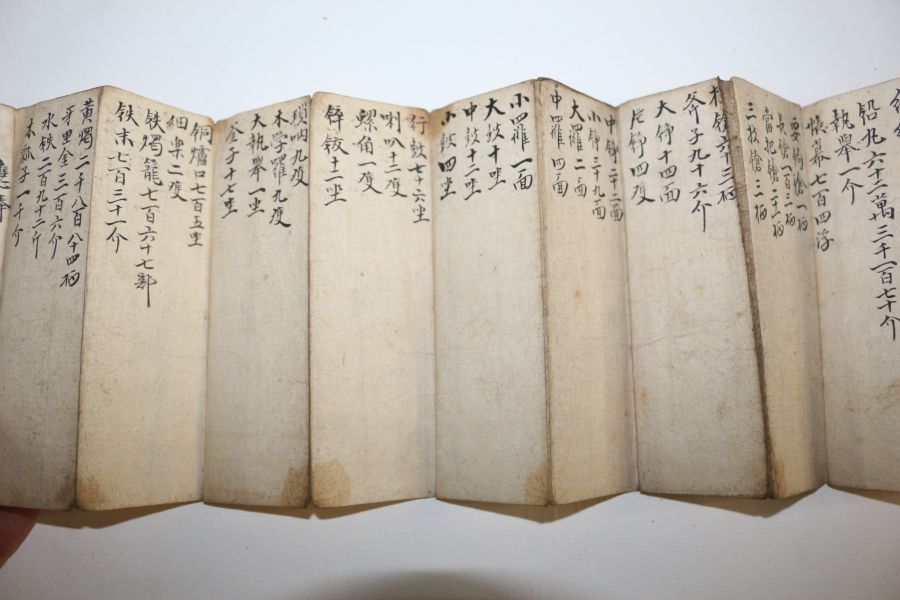 鉛丸六十二萬三千一百七十介
執擧一介
帳幕七百四浮
三枝鎗三柄
斧子九十六介
大錚十四面
片錚四度
中錚二十二面
小錚三十九面
大鑼二面
中鑼四面
小鑼一面
大鼓十坐
中鼓十二坐
小鼓四坐
行鼓七十六坐
喇叭十二度
螺角一度
鋅鈸十二坐
瑣吶九度
木孛羅九度
大執擧一坐
釜子十七坐
銅爐口七百五坐
細樂二度
铁燭籠七百六十七部
铁末七百三十一介
黃燭二千八百八十四柄
牙里金三百六介
水铁二百九十二斤
木瓢子一千介